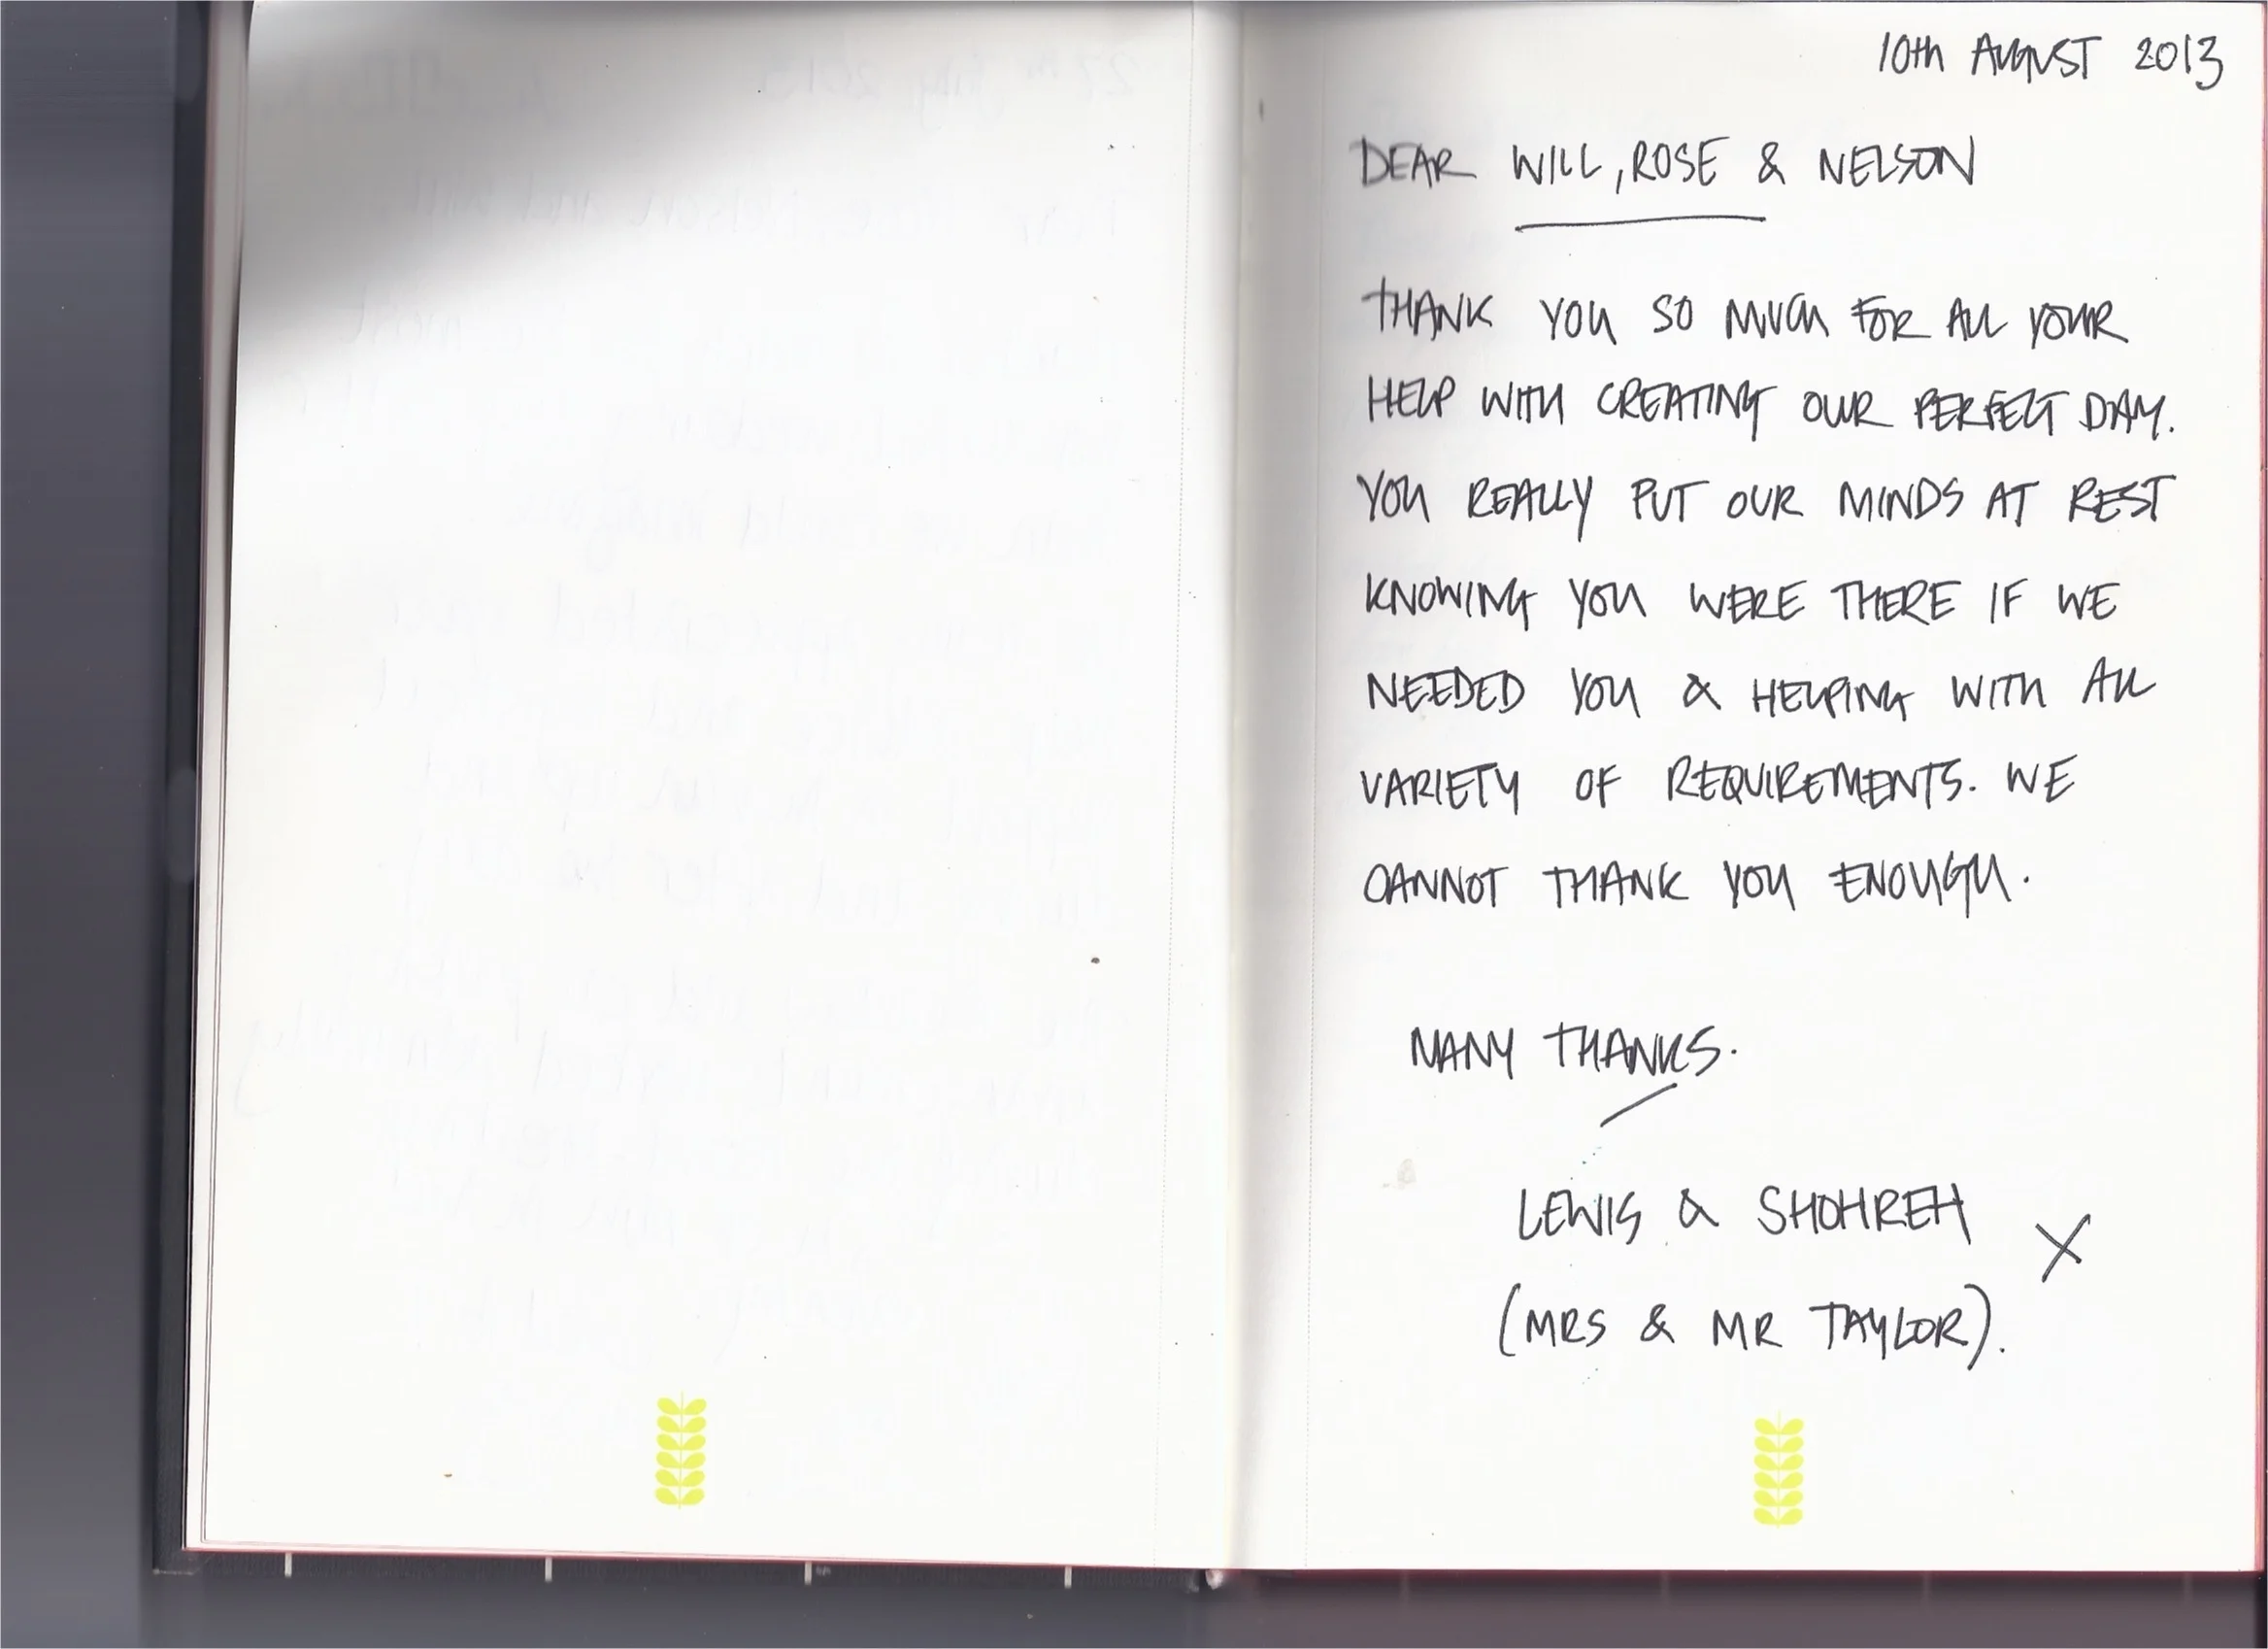 10th AUGUST 2013
DEAR WILL, ROSE & NELSON
THANK YOU SO MUCH FOR ALL YOUR
HELP WITH CREATING OUR PERFECT DAY.
YOU REALLY PUT OUR MINDS AT REST
KNOWING YOU WERE THERE IF WE
NEEDED YOU & HELPING WITH ALL
VARIETY OF REQUIREMENTS. WE
CANNOT THANK YOU ENOUGH.
MANY THANKS.
LEWIS & SHOHREH X
(MRS & MR TAYLOR).